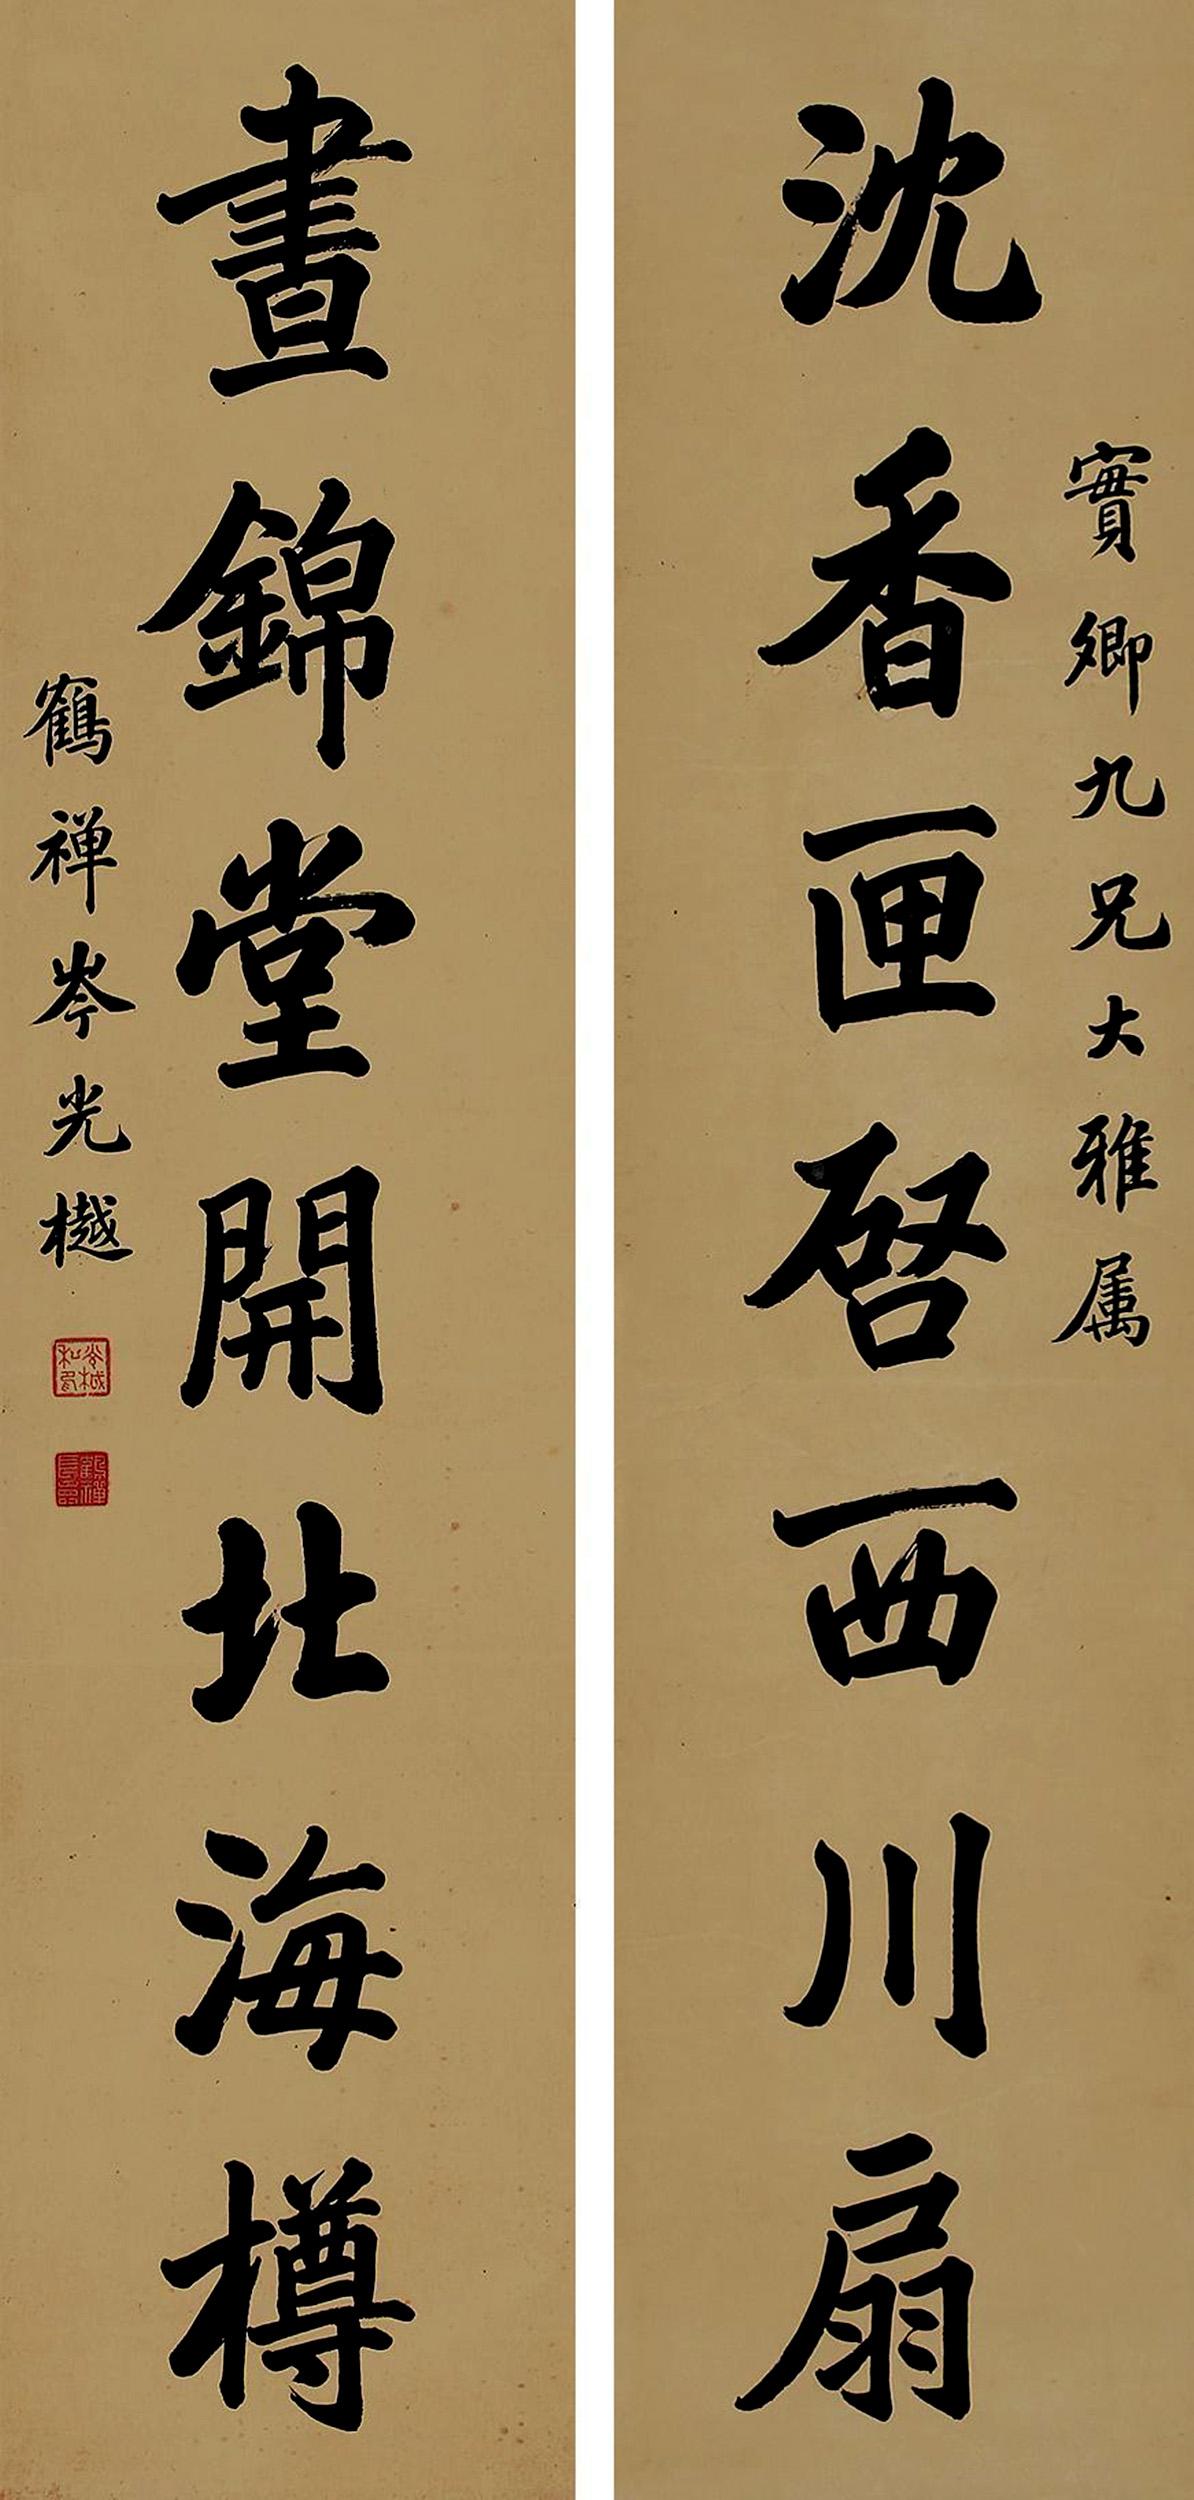 實卿九兄大雅属
沈香匣啓西川扇
晝錦堂開北海樽
鶴禅岑光樾